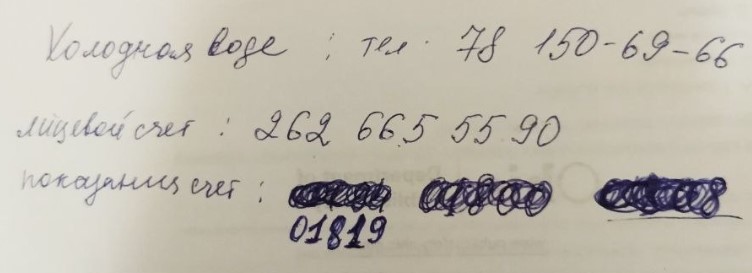 Холодная воде : тел. 78 150-69-66
лицевой счет : 262 665 55 90
показания счет :
01819